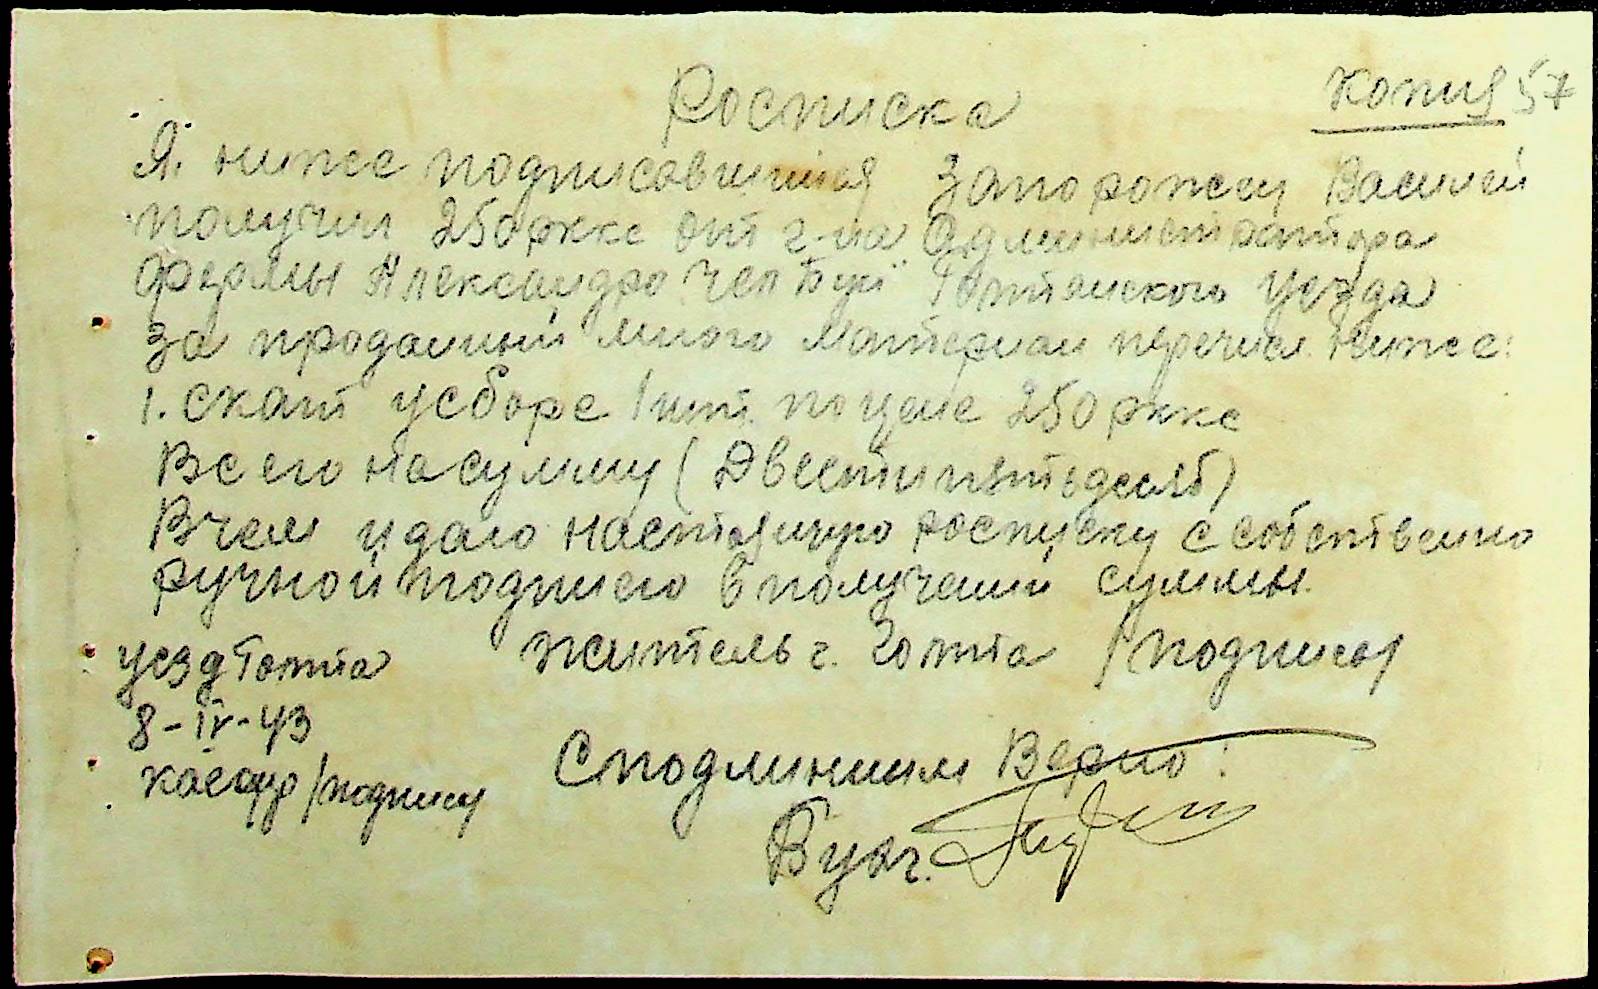 Росписка
Копия 57
Я. ниже подписавшийся Запорожец Василий
получил 250 рккс от г-на Администратора
фермы Александро Чел Буй Голтянского Уезда
за проданный мною материал перечисл. ниже:
1. Скат усборе 1 шт. по цене 250 рккс
Всего на сумму (Двести пятьдесят)
Вчем и даю настоящую роспуску с собственно
ручной подписью в получении суммы.
уезд Голта житель г. Голта /подпись/
8-IV-43
Касир /подпись/
Сподлинным Верно:
Бухг.